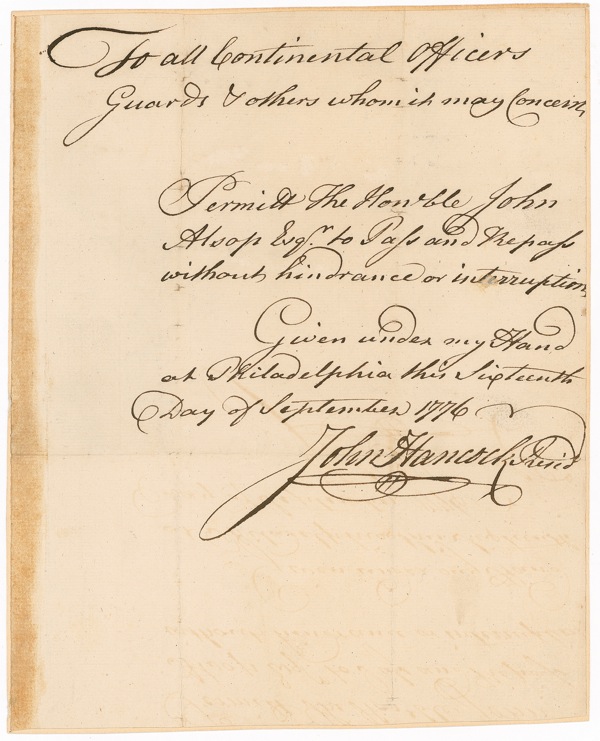 To all Continental Officers
Guards & others whom it may Concern,
Permitt the Hon'ble John
Alsop Esqr. to Pass and Repass
without hindrance or interruption,
Given under my Hand
at Philadelphia this Sixteenth
Day of September 1776
John Hancock Presid